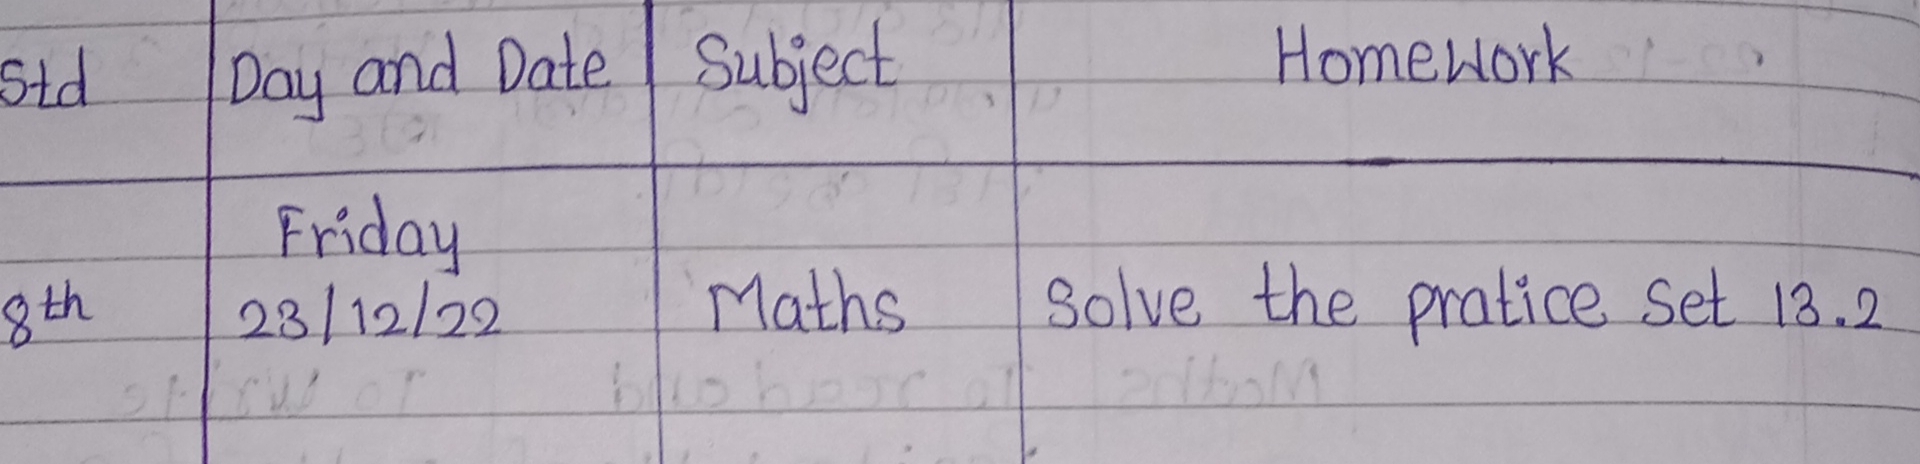 Std Day and Date Subject Homework
Friday
8th 23/12/22 Maths Solve the pratice set 13.2